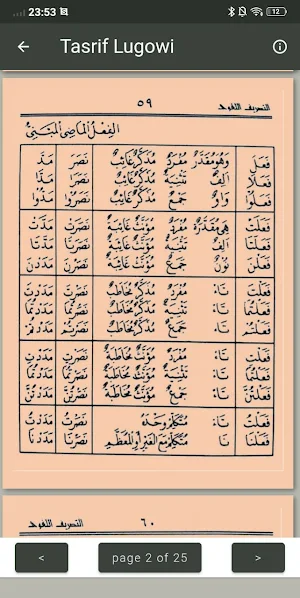 23:53 12
Tasrif Lugowi
التصريف اللغوى ٥٩
الفِعْلُ الْمَاضِى الْمَبْنِيُّ
فَعَلَ وَهُوَ مُقَدَّرٌ مُفْرَدٌ مُذَكَّرٌ غَائِبٌ نَصَرَ مَدَّ
فَعَلَا اَلِفٌ تَثْنِيَةٌ مُذَكَّرٌ غَائِبٌ نَصَرَا مَدَّا
فَعَلُوْا وَاوٌ جَمْعٌ مُذَكَّرٌ غَائِبٌ نَصَرُوْا مَدُّوْا
فَعَلَتْ هِيَ مُقَدَّرَةٌ مُفْرَدٌ مُؤَنَّثٌ غَائِبَةٌ نَصَرَتْ مَدَّتْ
فَعَلَتَا اَلِفٌ تَثْنِيَةٌ مُؤَنَّثٌ غَائِبَةٌ نَصَرَتَا مَدَّتَا
فَعَلْنَ نُوْنٌ جَمْعٌ مُؤَنَّثٌ غَائِبَةٌ نَصَرْنَ مَدَدْنَ
فَعَلْتَ تَا: مُفْرَدٌ مُذَكَّرٌ مُخَاطَبٌ نَصَرْتَ مَدَدْتَ
فَعَلْتُمَا تَا: تَثْنِيَةٌ مُذَكَّرٌ مُخَاطَبٌ نَصَرْتُمَا مَدَدْتُمَا
فَعَلْتُمْ تَا: جَمْعٌ مُذَكَّرٌ مُخَاطَبٌ نَصَرْتُمْ مَدَدْتُمْ
فَعَلْتِ تَا: مُفْرَدٌ مُؤَنَّثٌ مُخَاطَبَةٌ نَصَرْتِ مَدَدْتِ
فَعَلْتُمَا تَا: تَثْنِيَةٌ مُؤَنَّثٌ مُخَاطَبَةٌ نَصَرْتُمَا مَدَدْتُمَا
فَعَلْتُنَّ تَا: جَمْعٌ مُؤَنَّثٌ مُخَاطَبَةٌ نَصَرْتُنَّ مَدَدْتُنَّ
فَعَلْتُ تَا: مُتَكَلِّمٌ وَحْدَهُ نَصَرْتُ مَدَدْتُ
فَعَلْنَا نَا مُتَكَلِّمٌ مَعَ الْغَيْرِ أَوِ الْمُعَظِّمِ نَصَرْنَا مَدَدْنَا
التصريف اللغوى ٦٠
< page 2 of 25 >